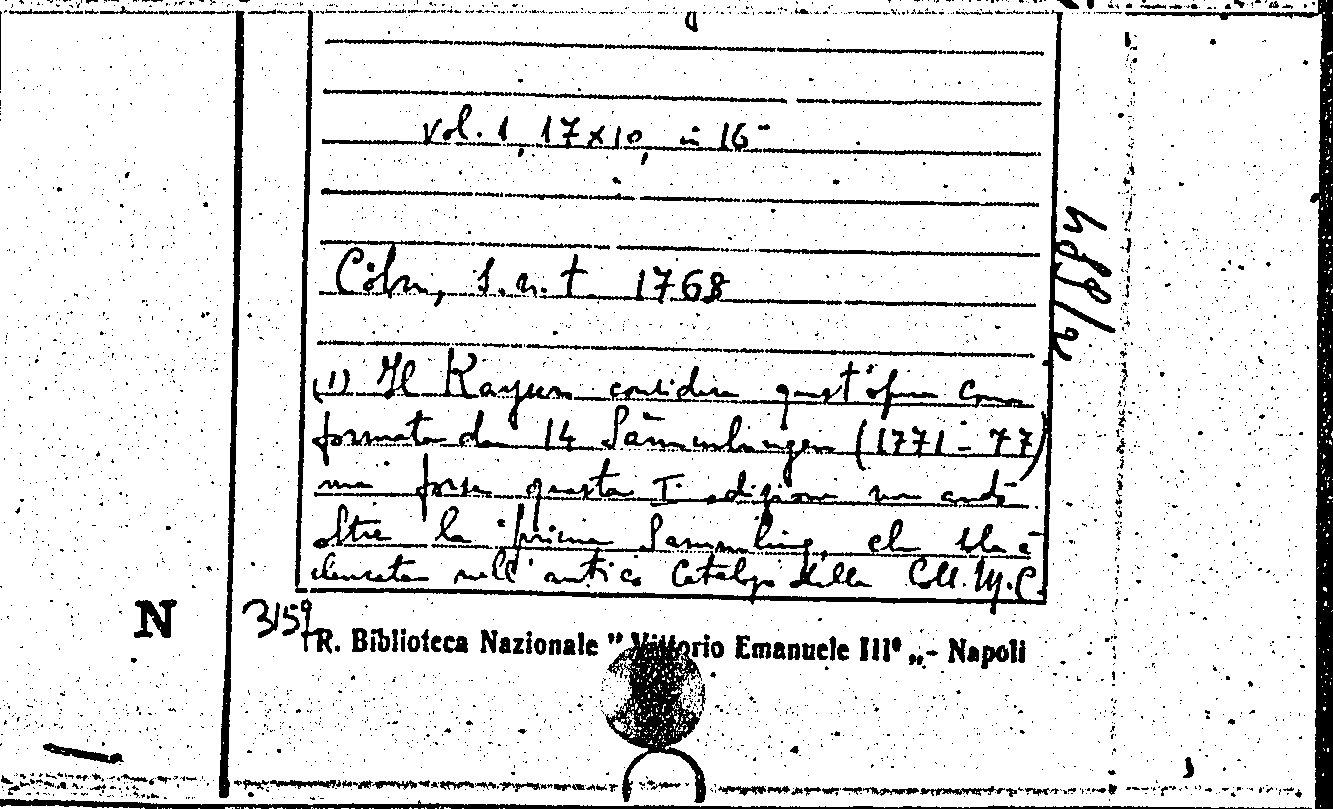 vol. 1, 17x10, in 16°
Cöln, s.n.t. 1768
(1) Il Kayser considera quest'opera come
formata da 14 Sammlungen (1771-77)
ma forse questa I edizione non andò
oltre la prima Sammlung, che
elencata nell'antico Catalogo della Coll. M.C.
N 3159
R. Biblioteca Nazionale " Vittorio Emanuele III° „- Napoli